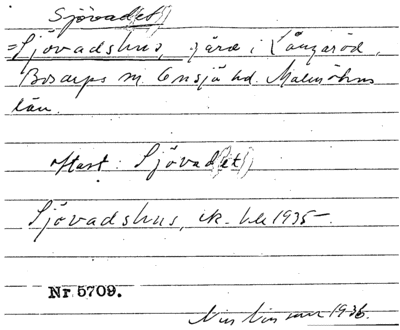 Sjövad(et)
= Sjövadshus, gård i Långaröd,
Bosarps sn. Onsjö hd. Malmöhus
län.
oftast: Sjövad(et)
Sjövadshus, ek. bl. 1935
Nr 5709.
1936.